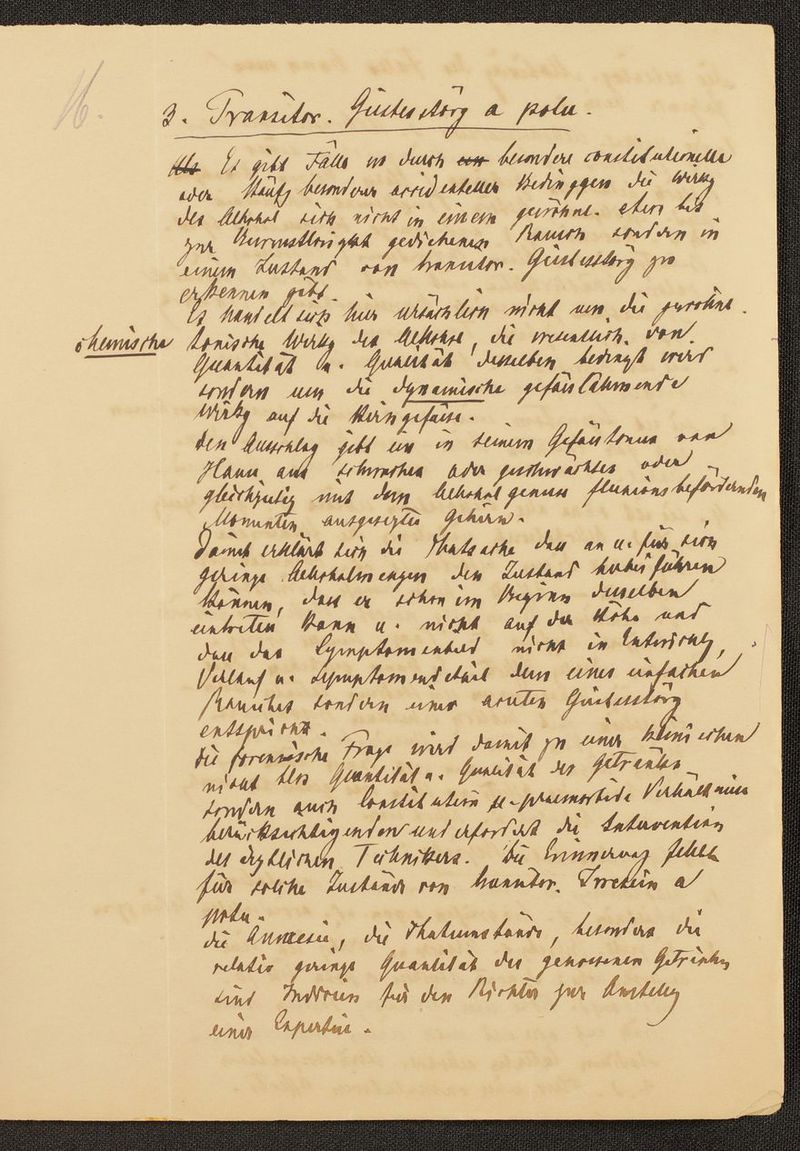 16.
3. Transitor. Geistesstörg a potu.
Als Es gibt Fälle wo durch besondere constitutionelle
oder häufg besonderer accidenteller Bedinggen die Wirkg
des Alkohol sich nicht in einem gewöhnl. etwa bis
zur Bewusstlosigkeit gediehenen Rausch sondern in
einem Zustand von transitor. Geistesstörg zu
erkennen gibt.
Es handelt sich hier ursächlich nicht um die gewöhnl.
chemische
toxische Wirkg des Alkohol, die wesentlich von
Quantität u. Qualität desselben bedingt wird
sondern um die dynamische gefässlähmende
Wirkg auf die Hirngefässe.
Den Ausschlag gibt ein in seinem Gefässtonus von
Hause aus schwaches oder geschwächtes oder
gleichzeitig mit dem Alkoholgenuss fluxionsbefördernden
Momenten ausgesetztes Gehirn.
Damit erklärt sich die Thatsache dass an u. für sich
geringe Alkoholmengen den Zustand herbeiführen
können, dass er schon im Beginn desselben
eintreten kann u. nicht auf der Höhe und
dass das Symptomenbild nicht in Entwicklg,
Verlauf u. Symptomendetail dem eines einfachen
Rausches sondern einer acuten Geistesstörg
entspricht.
Die forensische Frage wird damit zu einer klinischen
nicht blos Quantität u. Qualität des Getränks
sondern auch Constitution praemorbide Verhältnisse
berücksichtigenden und erfordert die Intervention
des ärztlichen Technikers. Die Erinnerung fehlt
für solche Zustände von transitor. Irresein a
potu.
Die Amnesie, die Thatumstände, besonders die
relativ geringe Quantität des genossenen Getränkes
sind Indicien für den Richter zur Anstellg
einer Expertise.